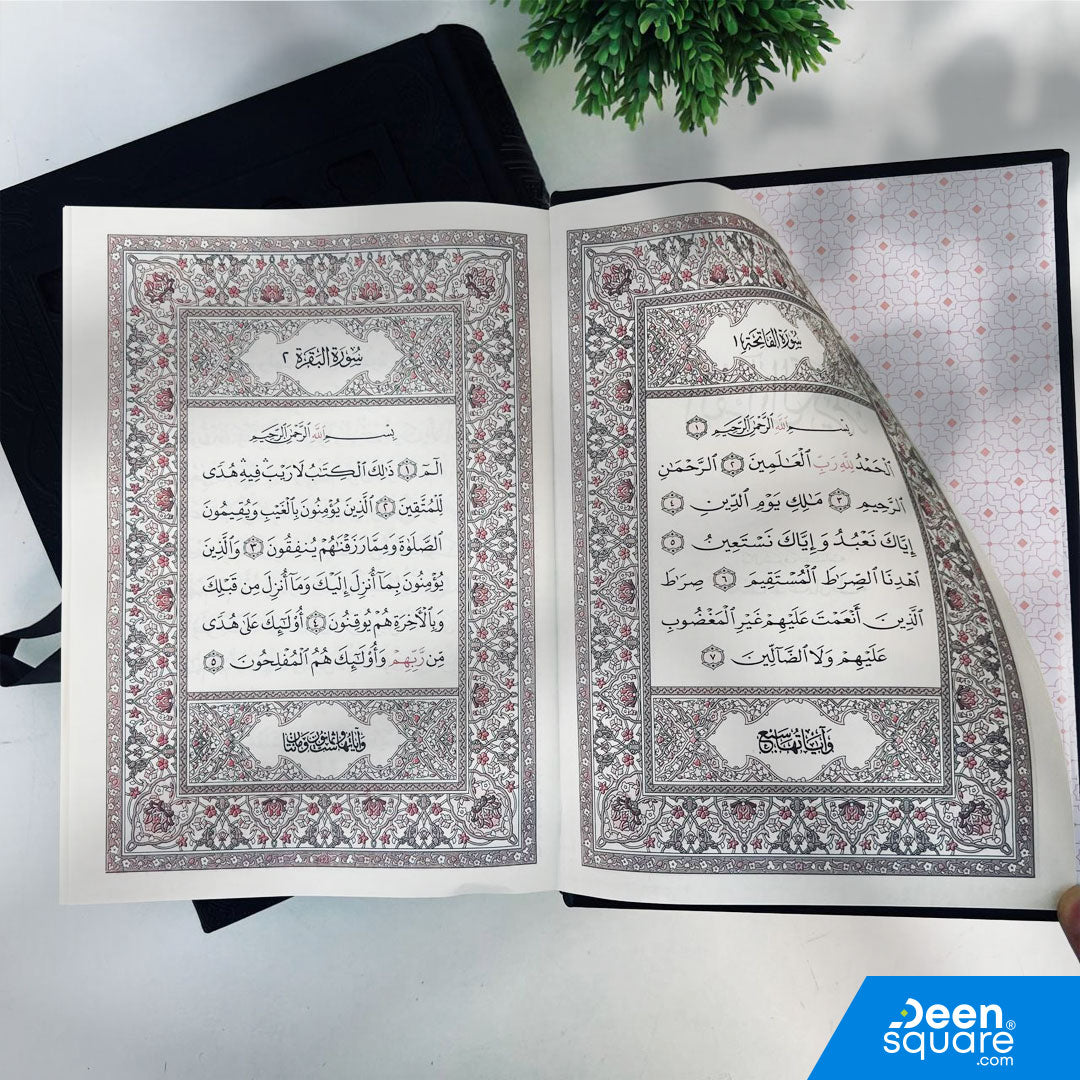 سُورَةُ الفَاتِحَةِ ١
بِسْمِ اللَّهِ الرَّحْمَٰنِ الرَّحِيمِ ١
الْحَمْدُ لِلَّهِ رَبِّ الْعَٰلَمِينَ ٢ الرَّحْمَٰنِ
الرَّحِيمِ ٣ مَٰلِكِ يَوْمِ الدِّينِ ٤
إِيَّاكَ نَعْبُدُ وَإِيَّاكَ نَسْتَعِينُ ٥
اهْدِنَا الصِّرَٰطَ الْمُسْتَقِيمَ ٦ صِرَٰطَ
الَّذِينَ أَنْعَمْتَ عَلَيْهِمْ غَيْرِ الْمَغْضُوبِ
عَلَيْهِمْ وَلَا الضَّآلِّينَ ٧
وَآيَاتُهَا سَبْعٌ
سُورَةُ البَقَرَةِ ٢
بِسْمِ اللَّهِ الرَّحْمَٰنِ الرَّحِيمِ
الٓمٓ ١ ذَٰلِكَ الْكِتَٰبُ لَا رَيْبَ ۛ فِيهِ ۛ هُدًى
لِّلْمُتَّقِينَ ٢ الَّذِينَ يُؤْمِنُونَ بِالْغَيْبِ وَيُقِيمُونَ
الصَّلَوٰةَ وَمِمَّا رَزَقْنَٰهُمْ يُنفِقُونَ ٣ وَالَّذِينَ
يُؤْمِنُونَ بِمَآ أُنزِلَ إِلَيْكَ وَمَآ أُنزِلَ مِن قَبْلِكَ
وَبِالْآخِرَةِ هُمْ يُوقِنُونَ ٤ أُولَٰٓئِكَ عَلَىٰ هُدًى
مِّن رَّبِّهِمْ وَأُولَٰٓئِكَ هُمُ الْمُفْلِحُونَ ٥
وَآيَاتُهَا سِتٌّ وَثَمَانُونَ وَمِائَتَانِ
Deen
square®
.com